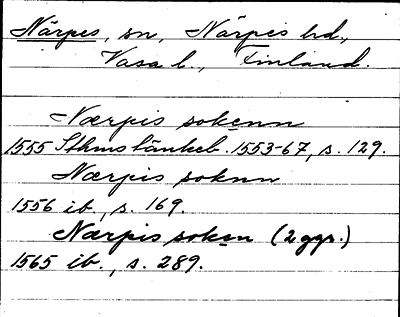 Närpes, sn, Närpes hd.,
Vasa l., Finland.
Nærpis sokenn
1555 Sthms tänkeb. 1553-67, s. 129.
Nærpis soknn
1556 ib., s. 169.
Nærpis soken (2 ggr.)
1565 ib., s. 289.